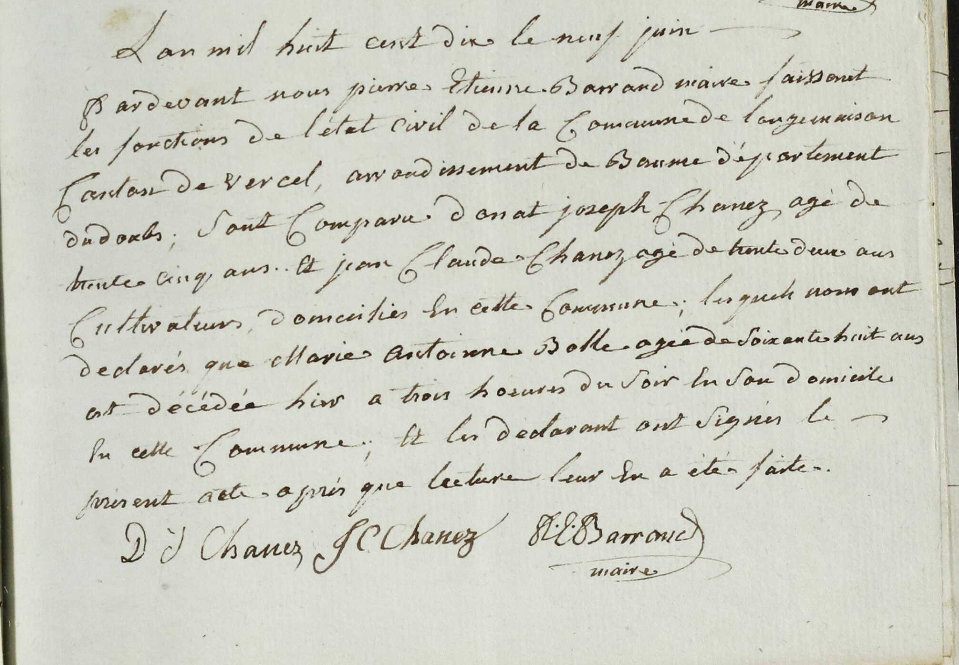 maire
L'an mil huit cent dix le neuf juin
Pardevant nous pierre Etienne Barrand maire faissant
les fonctions de l'état civil de la Commune de longemaison
Canton de vercel, arrondissement de Baume département
du doubs; Sont Comparu donat joseph Chanez agé de
trente cinq ans. Et jean Claude Chanez agé de trente deux ans
Cultivateurs, domiciliés En cette Commune; lesquels nous ont
declarés que Marie Antoinne Bolle agée de Soixante huit ans
est décédée hier a trois hoeures du Soir En Son domicile
En cette Commune; Et les declarant ont Signés le
présent acte après que lecture leur En a été faite.
D J Chanez J C Chanez P. E. Barrand
maire